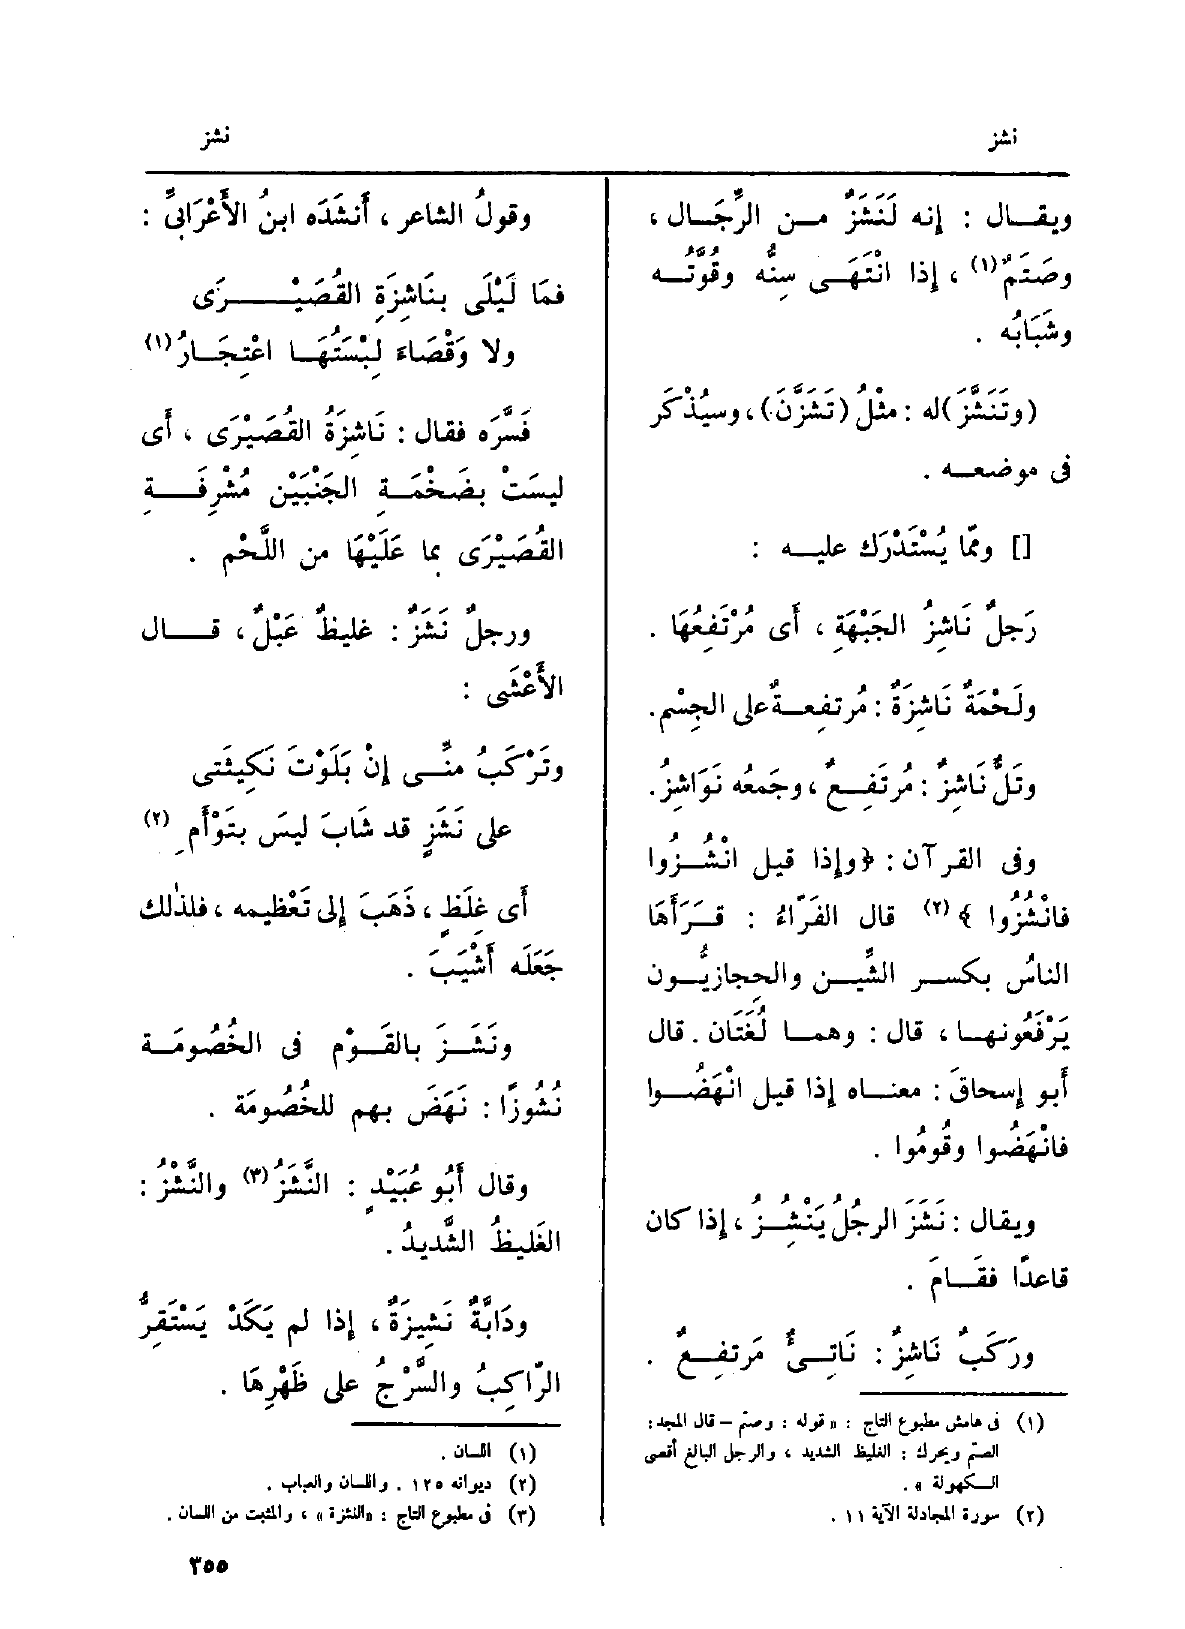 نشز
نشز
ويقال : إنه لَنَشَزٌ من الرِّجَال ،
وصَتَمٌ(١) ، إذا انْتَهَى سِنُّه وقُوَّتُه
وشَبَابُه .
(وتَنَشَّزَ)له : مثْلُ (تَشَزَّنَ)، وسيُذْكَر
فى موضعه .
[] وممّا يُسْتَدْرَك عليه :
رَجلٌ نَاشِزُ الجَبْهَةِ ، أَى مُرْتَفِعُهَا .
ولَحْمَةٌ نَاشِزَةٌ : مُرتفِعةٌ على الجِسْم.
وتَلٌّ نَاشِزٌ : مُرتَفِعٌ ، وجَمعُه نَوَاشِزُ.
وفى القرآن : ﴿وإذا قيل انْشُزُوا
فانْشُزُوا ﴾ (٢) قال الفَرّاءُ : قَرَأَها
الناسُ بكسر الشِّين والحجازيُّون
يَرْفَعُونها ، قال : وهما لُغَتَان . قال
أَبو إِسحاقَ : معناه إذا قيل انْهَضُوا
فانْهَضُوا وقُومُوا .
ويقال : نَشَزَ الرجُلُ يَنْشِزُ ، إذا كان
قاعدًا فقَامَ .
ورَكَبٌ نَاشِزٌ : نَاتِئٌ مَرتفِعٌ .
(١) فى هامش مطبوع التاج : « قوله : وصتم – قال المجد :
الصتم ويحرك : الغليظ الشديد ، والرجل البالغ أقصى
الكهولة » .
(٢) سورة المجادلة الآية ١١ .
وقولُ الشاعر ، أَنشَدَه ابنُ الأَعْرَابىِّ :
فمَا لَيْلَى بنَاشِزَةِ القُصَيْرَى
ولا وَقْصَاءَ لِبْسَتُهَا اعْتِجَارُ(١)
فَسَّرَه فقال : نَاشِزَةُ القُصَيْرَى ، أَى
ليسَتْ بضَخْمَةِ الجَنْبَيْن مُشْرِفَةِ
القُصَيْرَى بما عَلَيْهَا من اللَّحْم .
ورجلٌ نَشَزٌ : غليظٌ عَبْلٌ ، قال
الأَعْشَى :
وتَرْكَبُ منِّى إنْ بَلَوْتَ نَكِيثَتى
على نَشَزٍ قد شَابَ ليسَ بتوْأَمِ (٢)
أَى غِلَظٍ ، ذَهَبَ إلى تَعْظيمه ، فلذٰلك
جَعَلَه أَشْيَبَ .
ونَشَزَ بالقَوْم فى الخُصُومَة
نُشُوزًا : نَهَضَ بهم للخُصُومَة .
وقال أَبُو عُبَيْدٍ : النَّشَزُ(٣) والنَّشْزُ :
الغَليظُ الشَّديدُ .
ودَابَّةٌ نَشِيزَةٌ ، إذا لم يَكَدْ يَسْتَقِرُّ
الرّاكِبُ والسَّرْجُ على ظَهْرِهَا .
(١) اللسان .
(٢) ديوانه ١٢٥ . واللسان والعباب .
(٣) فى مطبوع التاج : «النشزة » ، والمثبت من اللسان .
٣٥٥